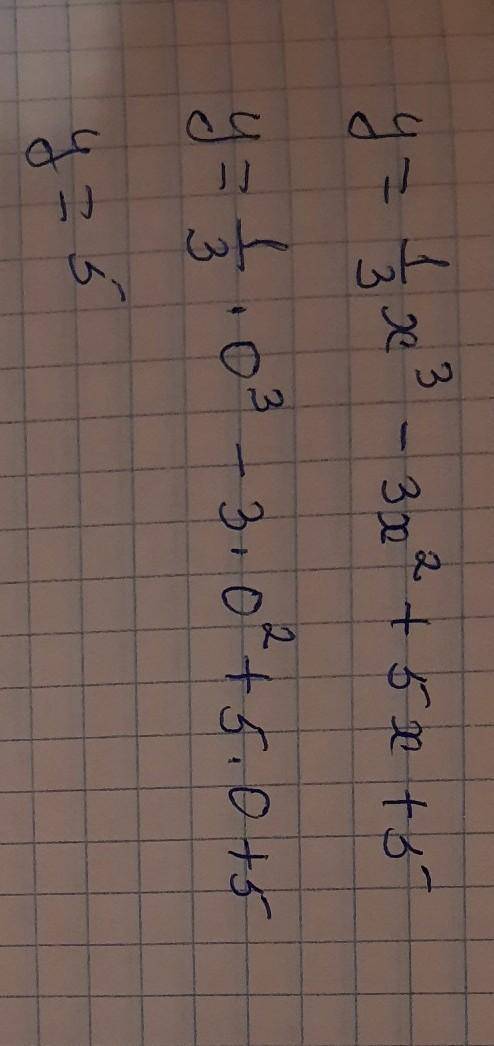 y = 1/3 x³ - 3x² + 5x + 5
y = 1/3 · 0³ - 3 · 0² + 5 · 0 + 5
y = 5